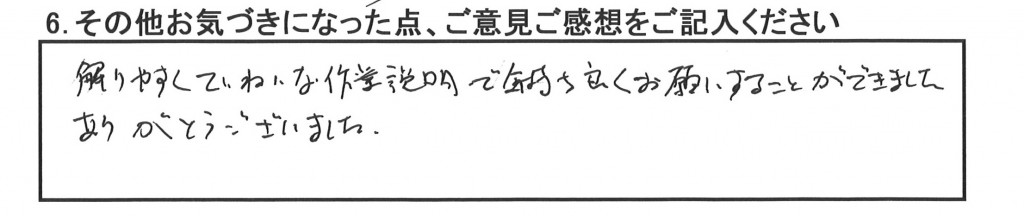 6.その他お気づきになった点、ご意見ご感想をご記入ください
解りやすくていねいな作業説明で気持ち良くお願いすることができました
ありがとうございました.